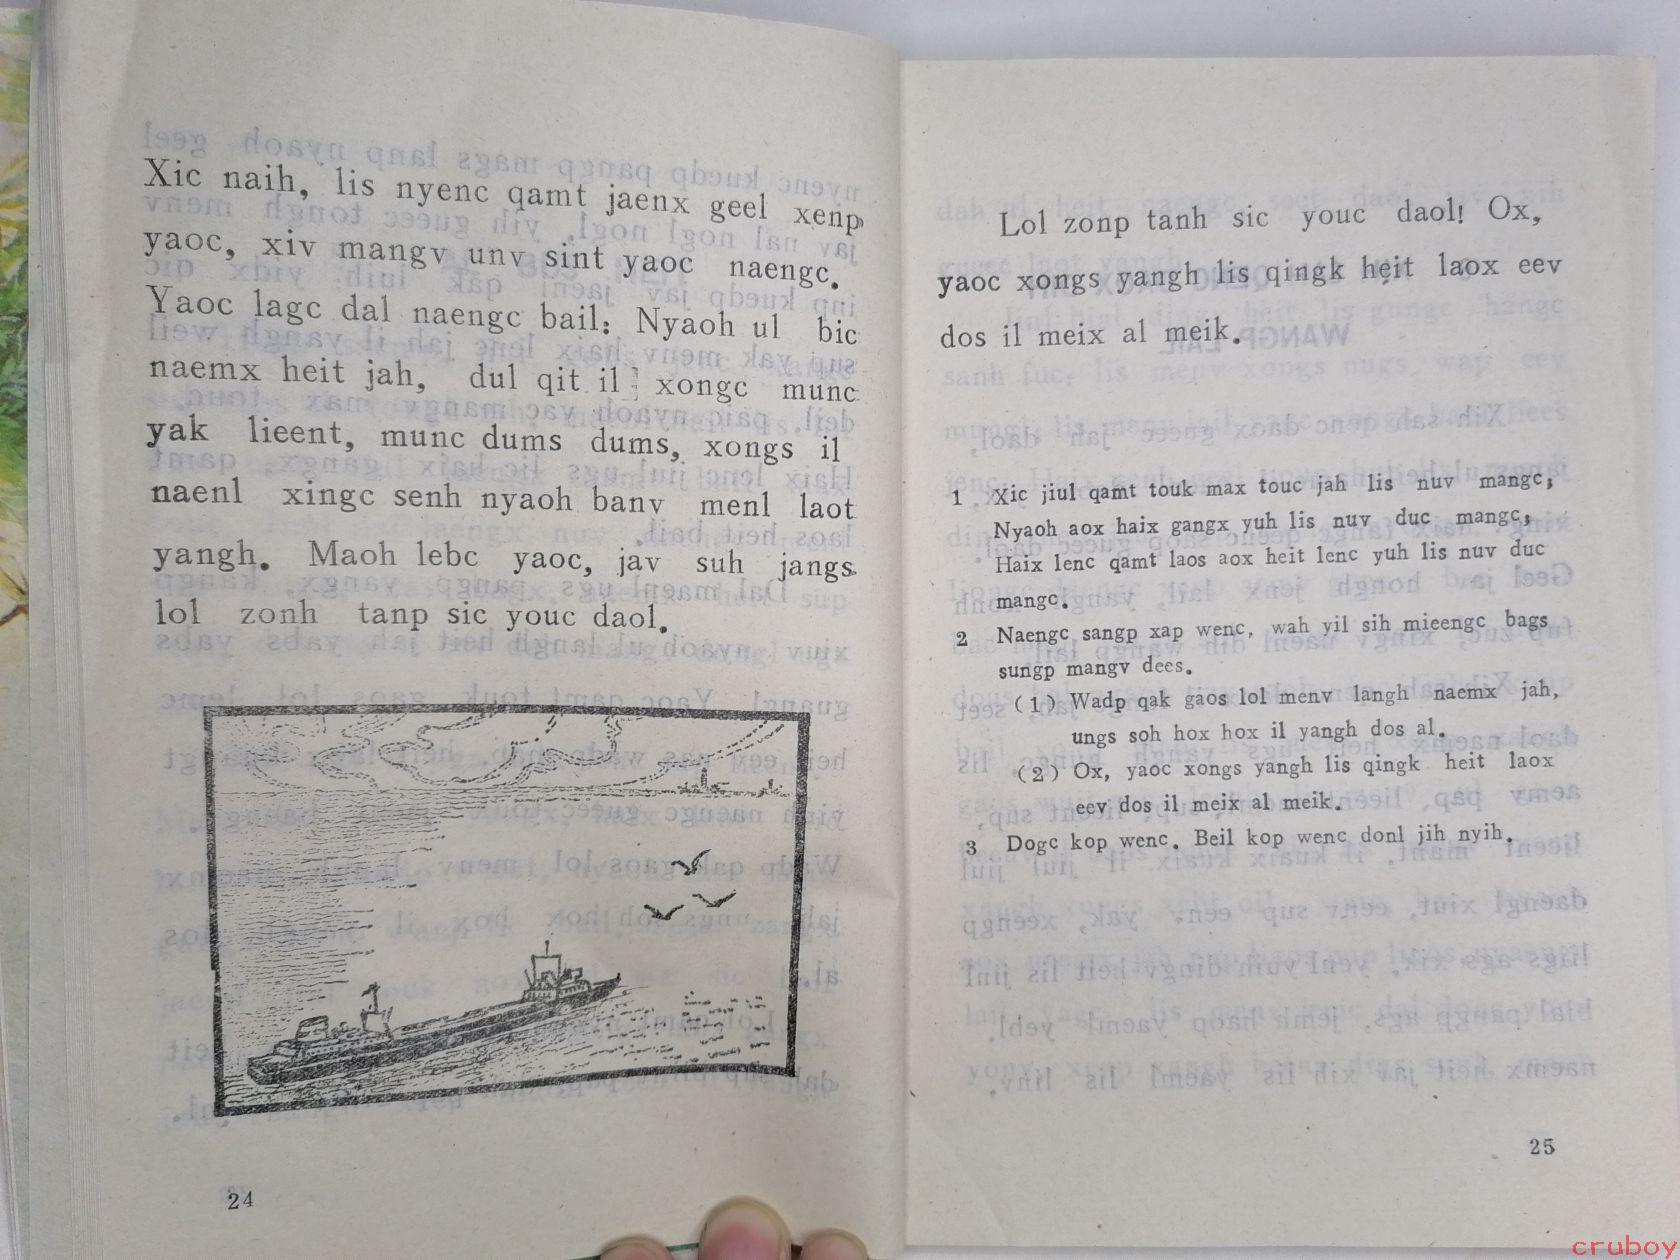 Xic naih, lis nyenc qamt jaenx geel xenp
yaoc, xiv mangv unv sint yaoc naengc.
Yaoc lagc dal naengc bail: Nyaoh ul bic
naemx heit jah, dul qit il xongc munc
yak lieent, munc dums dums, xongs il
naenl xingc senh nyaoh banv menl laot
yangh. Maoh lebc yaoc, jav suh jangs
lol zonh tanp sic youc daol.
24
Lol zonp tanh sic youc daol! Ox,
yaoc xongs yangh lis qingk heit laox eev
dos il meix al meik.
1 Xic jiul qamt touk max touc jah lis nuv mangc,
Nyaoh aox haix gangx yuh lis nuv duc mangc,
Haix lenc qamt laos aox heit lenc yuh lis nuv duc
mangc.
2 Naengc sangp xap wenc, wah yil sih mieengc bags
sungp mangv dees.
(1) Wadp qak gaos lol menv langh naemx jah,
ungs soh hox hox il yangh dos al.
(2) Ox, yaoc xongs yangh lis qingk heit laox
eev dos il meix al meik.
3 Dogc kop wenc. Beil kop wenc donl jih nyih.
25
cruboy